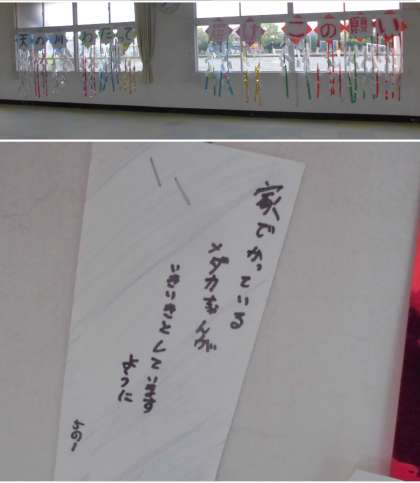 天の川 わたて 届け この願い
家でかっている
メダカちゃんが
いきいきとしています
ように